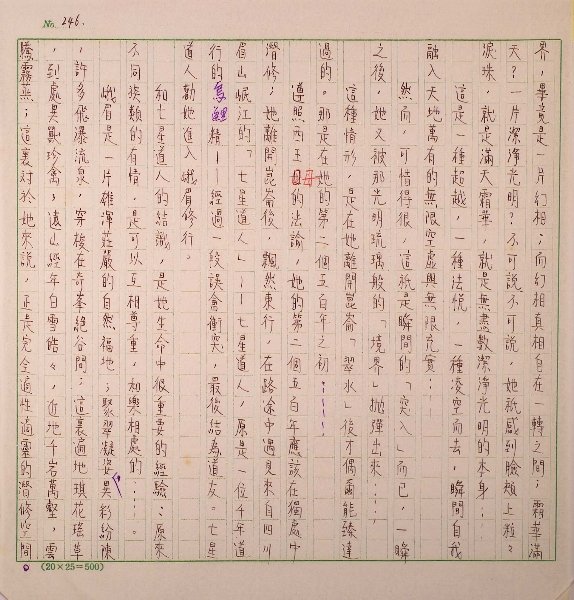 No. 246.
界，畢竟是一片幻相；而幻相真相自在一轉之間；霜華滿
天？一片潔淨光明？不可說不可說，她祇感到臉頰上粒々
淚珠，就是滿天霜華，就是無盡數潔淨光明的本身…
這是一種超越，一種法悅，一種凌空而去，瞬間自我
融入天地萬有的無限空虛與無限充實…
然而，可惜得很，這祇是瞬間的「突入」而已，一瞬
之後，她又被那光明琉璃般的「境界」拋彈出來…；
這種情形，是在她離開崑崙「翠水」後才偶爾能臻達
過的。那是在她的第二個五百年之初……
遵照西王母的法諭，她的第二個五百年應該在獨處中
潛修；她離開崑崙後，飄然東行，在路途中遇見來自四川
眉山岷江的「七星道人」——七星道人，原是一位千年道
行的烏鯉精——經過一絞誤會衝突，最後結為道友。七星
道人勸她進入峨眉修行。
和七星道人的結識，是她生命中很重要的經驗：原來
不同族類的有情，是可以互相尊重，和樂相處的……。
峨眉是一片雄渾莊嚴的自然福地；聚翠凝姿異彩紛陳
，許多飛瀑流泉，穿梭在奇峯絕谷間；這裏遍地琪花瑤草
，到處異獸珍禽；遠山經年白雪皓々，近地千岩萬壑，雲
騰霧蒸；這裏對於她來說，正是完全適性適靈的潛修空間
。
(20×25=500)